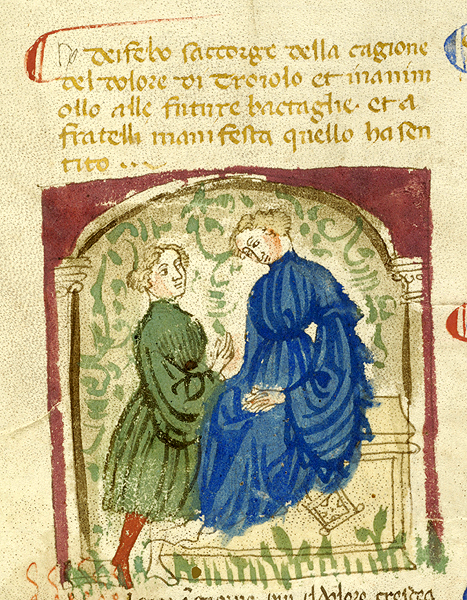 Deifebo saccorge della cagione
del dolore di Troiolo et inanim
ollo alle future bactaglie. et a
fratelli manifesta quello ha sen
tito